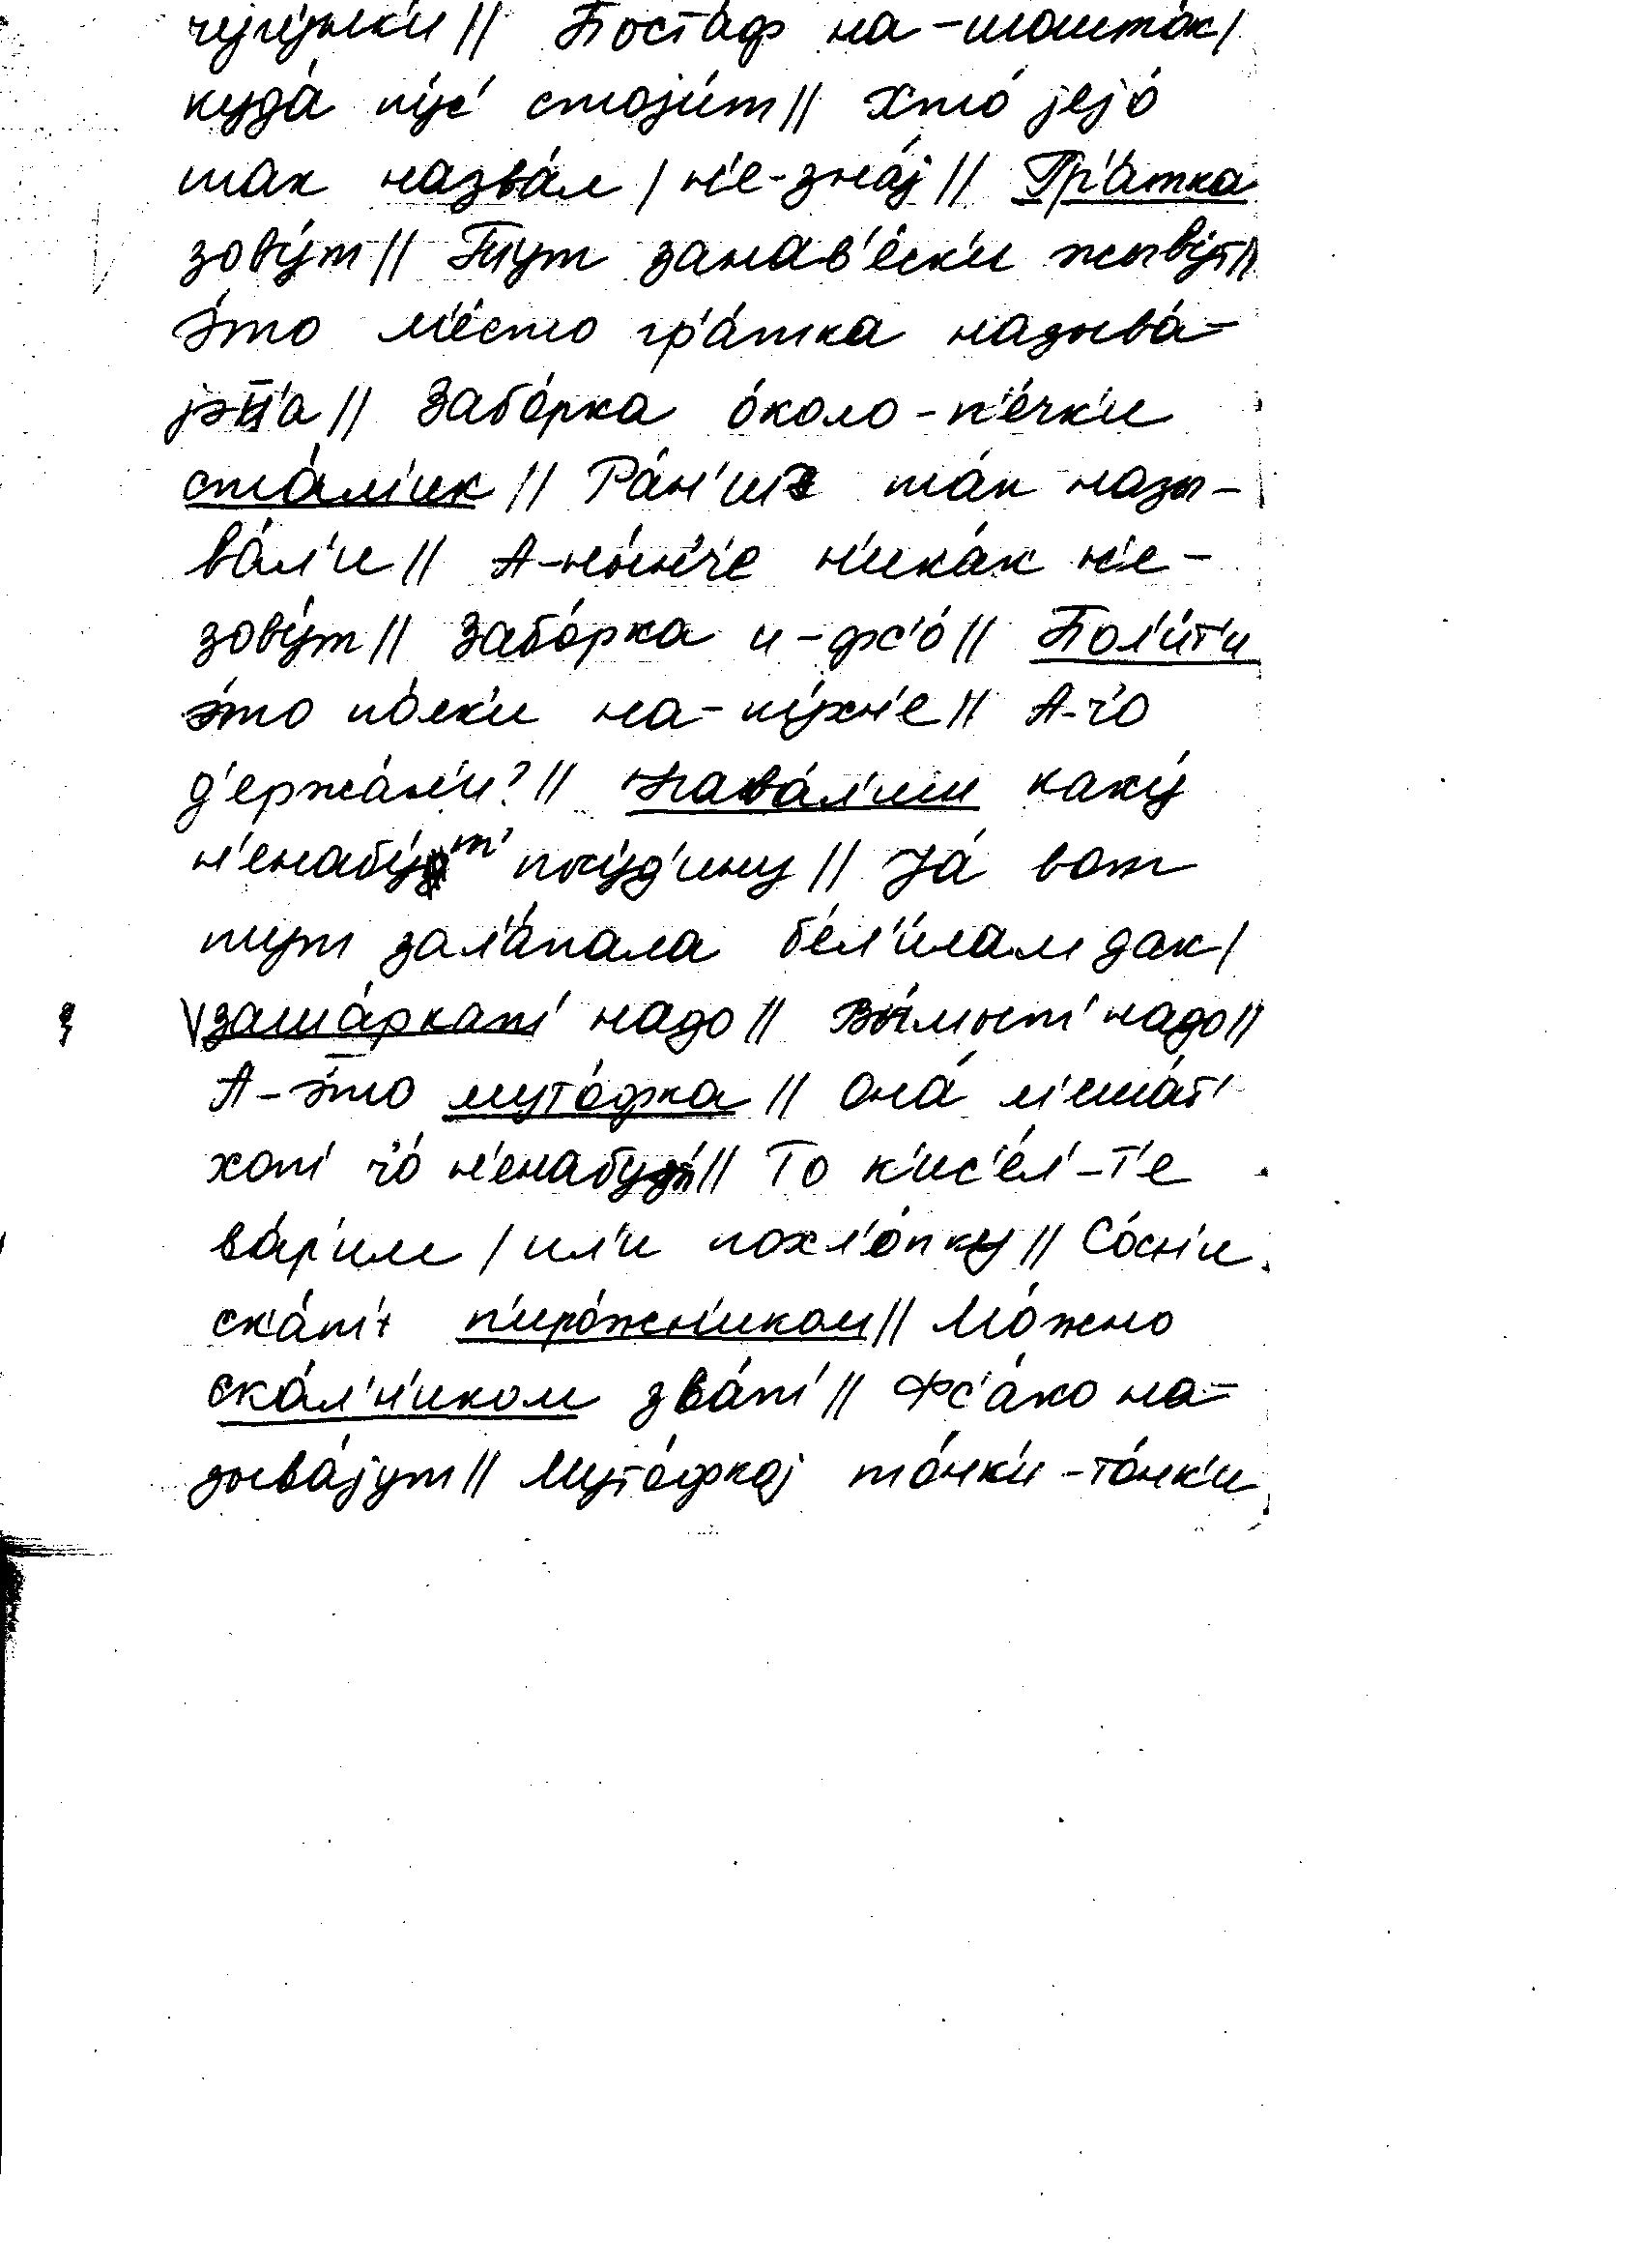 чуг'у́нк'и // Поста́ф на-шошто́к /
куда́ пу́с' стоjи́т // Хто́ jejо́
так назва́л / н'е-зна́j // Гр'а́тка
зову́т // Тут занав'е́ск'и жыву́т //
Э́то м'е́сто гр'а́тка называ́-
jэц̄а // Забо́рка о́коло-п'е́чк'и
ста́м'ик // Ра́н'шэ та́к назы-
ва́л'и // А-ны́н'че н'ика́к н'е-
зову́т // Забо́рка и-фс'о́ // Пол'и́т'и
э́то по́лк'и на-ку́хн'е // А-ч'о
д'ержа́л'и? // Нава́л'им каку́
н'енабу́т' посу́д'ину // Jа́ вот
тут зал'а́пала б'ел'и́лам дак /
заша́ркат' надо // Вы́мыт' надо //
А-э́то муто́фка // Она́ м'еша́т'
хот' ч'о́ н'енабут' // То к'ис'е́л'-т'е
ва́р'им / ил'и похл'о́пку // Со́сн'и
ска́т' п'иро́жн'иком // Мо́жно
ска́л'н'иком зва́т' // Фс'а́ко на-
зыва́jут // Муто́фкоj то́нк'и-то́нк'и